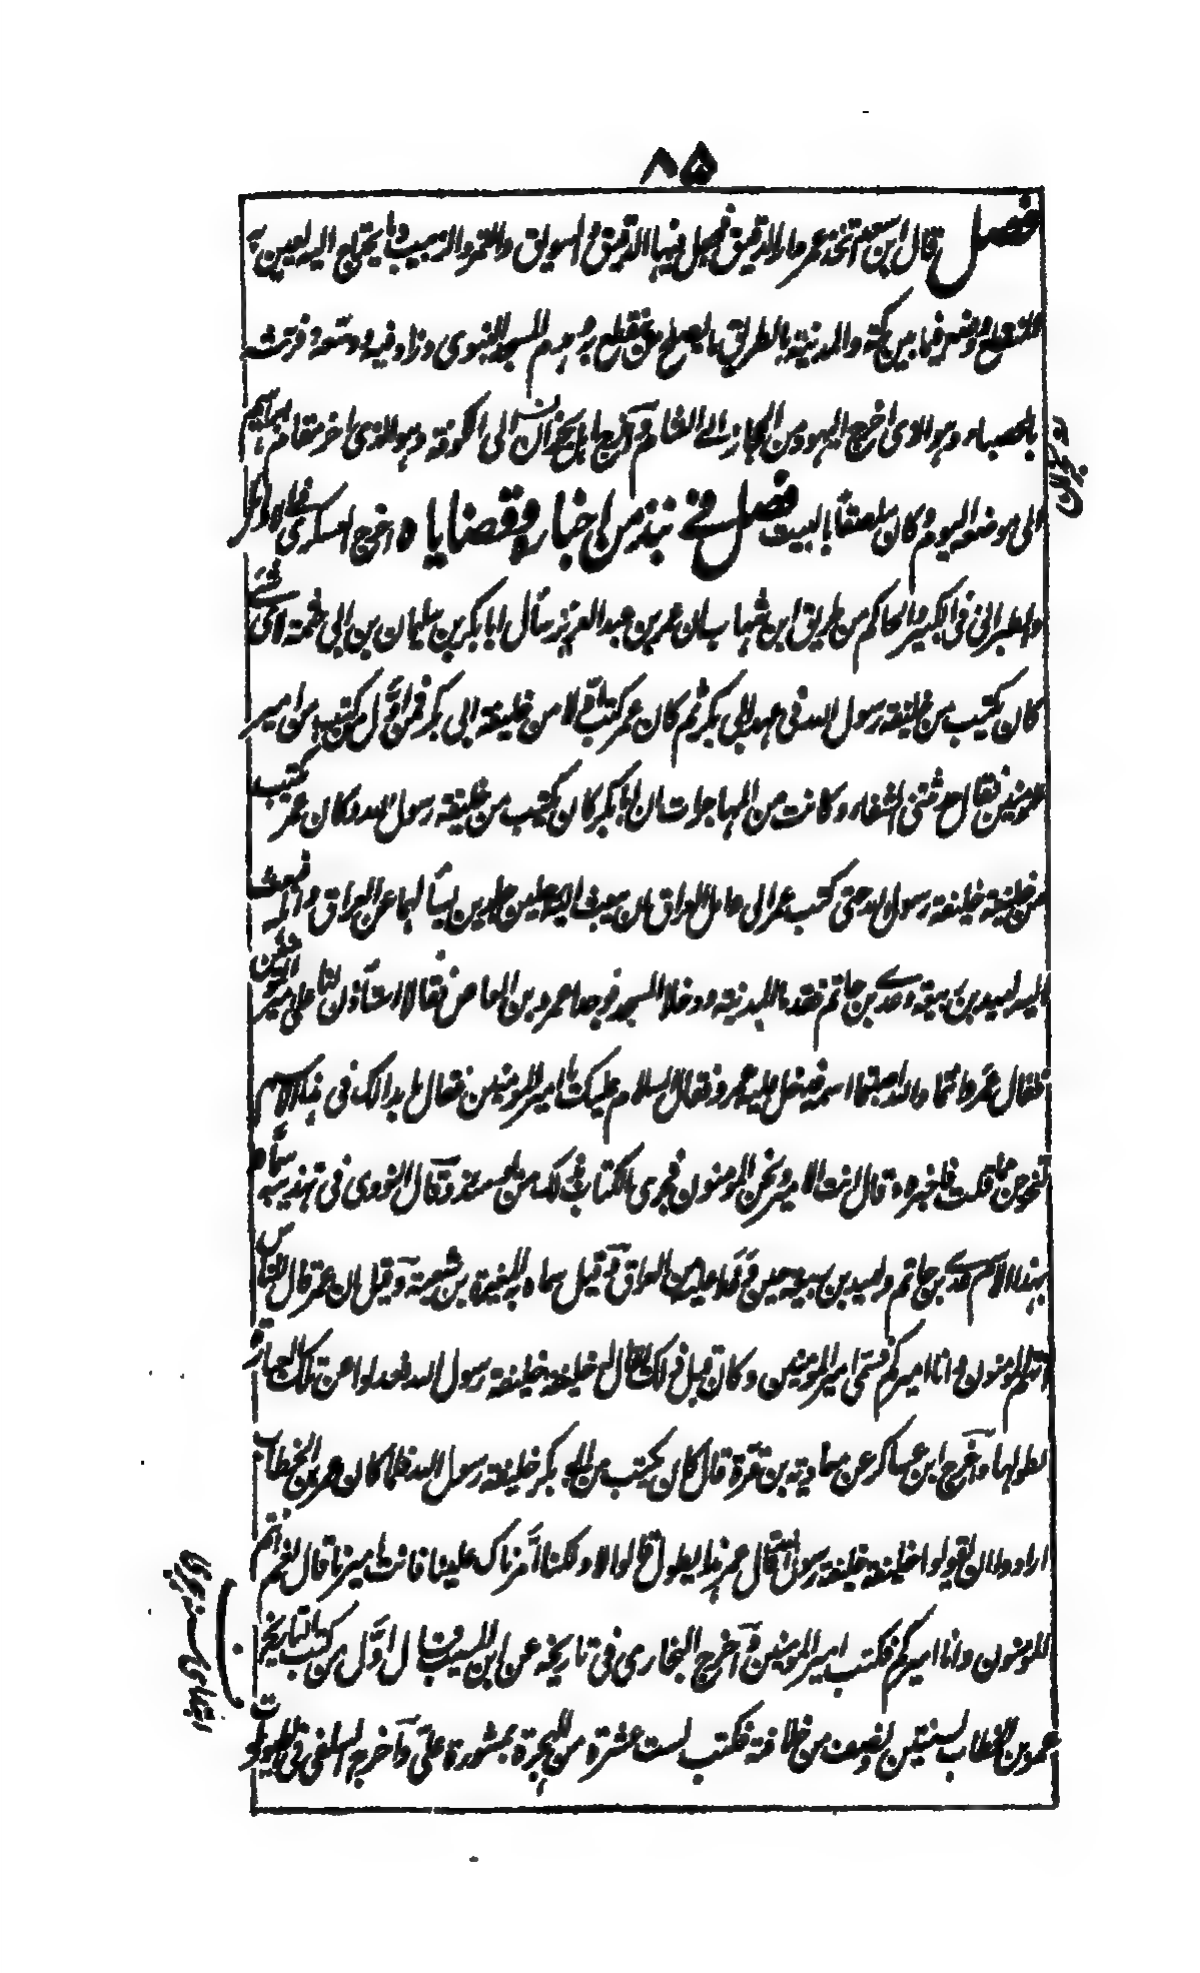 ۸۵
فصل قال ابن سعد اتخذ عمر دار الدقيق فجعل فيها الدقيق والسويق والتمر والزبيب وما يحتاج اليه يعين به
المنقطع ووضع فيما بين مكة والمدينة بالطريق ما يصلح من ينقطع به وهدم المسجد النبوى وزاد فيه ووسعه وفرشه
بالحصباء وهو الذى اخرج اليهود من الحجاز الى الشام واخرج اهل نجران الى الكوفة وهو الذى اخر مقام ابراهيم
الى موضعه اليوم وكان ملصقا بالبيت فصل فى نبذ من اخباره وقضاياه اخرج العسكرى فى الاوائل
والطبرانى فى الكبير والحاكم من طريق ابن شهاب ان عمر بن عبد العزيز سأل ابا بكر بن سليمان بن ابى حثمة لاى شئ
كان يكتب من خليفة رسول الله فى عهد ابى بكر ثم كان عمر كتب اولا من خليفة ابى بكر فمن اول من كتب من امير
المؤمنين فقال حدثتنى الشفاء وكانت من المهاجرات ان ابا بكر كان يكتب من خليفة رسول الله وكان عمر يكتب
من خليفة خليفة رسول الله حتى كتب عمر الى عامل العراق ان يبعث اليه رجلين جلدين يسألهما عن العراق واهله فبعث
اليه لبيد بن ربيعة وعدى بن حاتم فقدما المدينة ودخلا المسجد فوجدا عمرو بن العاص فقالا استأذن لنا على امير المؤمنين
فقال عمرو انتما والله اصبتما اسمه فدخل عليه عمرو فقال السلام عليك يا امير المؤمنين فقال ما بدا لك فى هذا الاسم
لتخرجن مما قلت فاخبره وقال انت الامير ونحن المؤمنون فجرى الكتاب بذلك من يومئذ وقال النووى فى تهذيبه سماه
بهذا الاسم عدى بن حاتم ولبيد بن ربيعة حين وفدا عليه من العراق وقيل سماه به المغيرة بن شعبة وقيل ان عمر قال للناس
انتم المؤمنون وانا اميركم فسمى امير المؤمنين وكان قبل ذلك يقال له خليفة خليفة رسول الله فعدلوا عن تلك العبارة
لطولها واخرج ابن عساكر عن معاوية بن قرة قال كان يكتب من ابى بكر خليفة رسول الله فلما كان عمر بن الخطاب
ارادوا ان يقولوا خليفة خليفة رسول الله قال عمر هذا يطول قالوا لا ولكنا امرناك علينا فانت اميرنا قال نعم انتم
المؤمنون وانا اميركم فكتب امير المؤمنين واخرج البخارى فى تاريخه عن ابن المسيب قال اول من كتب التاريخ
عمر بن الخطاب لسنتين ونصف من خلافته فكتب لست عشرة من الهجرة بمشورة على واخرج السلفى فى الطيوريات